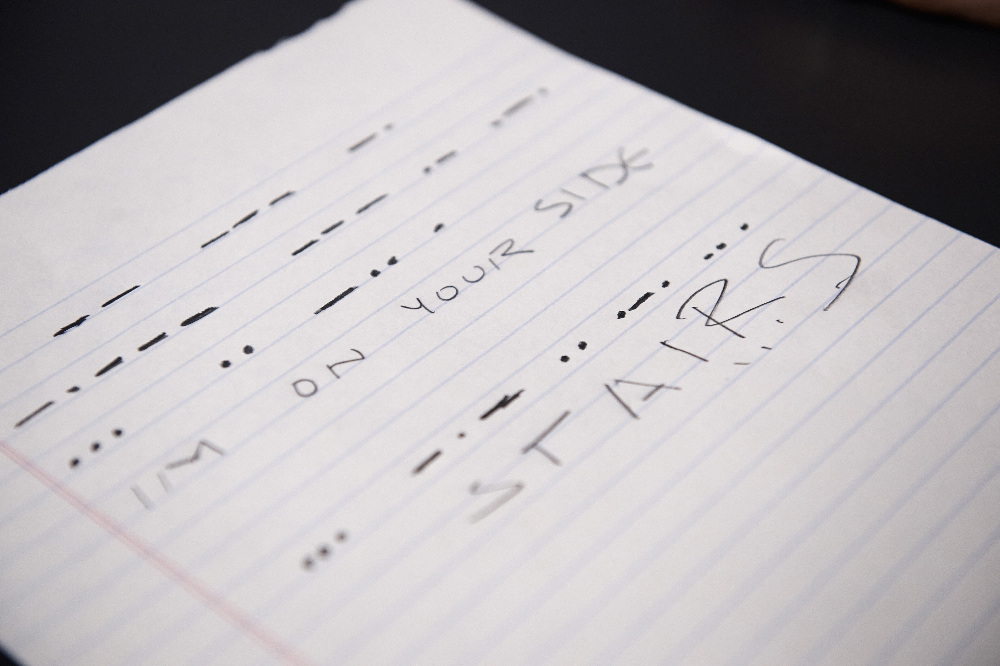 -- --- -.
-.--- --- ..- .-.
... .. -.. .
I'M ON YOUR SIDE
... - .- .. .-. ...
STAIRS